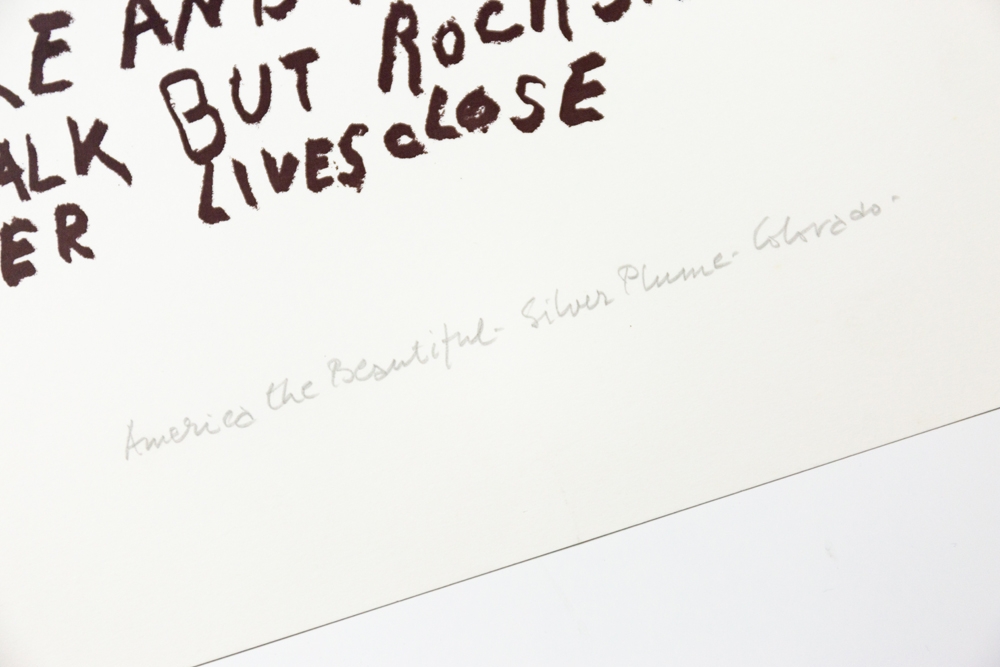 RE AND
ALK BUT ROCKS
ER LIVES CLOSE
America the Beautiful - Silver Plume - Colorado -